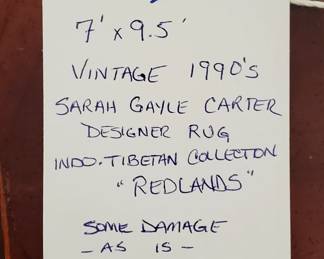 7' x 9.5'
VINTAGE 1990'S
SARAH GAYLE CARTER
DESIGNER RUG
INDO-TIBETAN COLLECTON
"REDLANDS"
SOME DAMAGE
- AS IS -